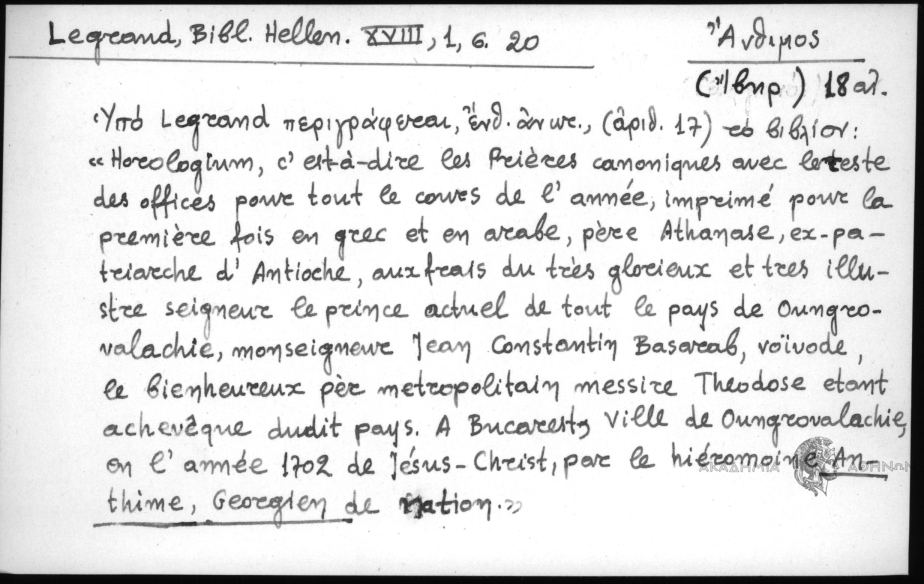 Legrand, Bibl. Hellen. XVIII, 1, σ. 20
Ἄνθιμος
(Ἴβηρ) 18 αἰ.
Ὑπό Legrand περιγράφεται, ἔνθ. ἀνωτ., (ἀριθ. 17) τό βιβλίον:
« Horologium, c'est-à-dire les Prières canoniques avec le teste
des offices pour tout le cours de l'année, imprimé pour la
première fois en grec et en arabe, père Athanase, ex-pa-
triarche d'Antioche, aux frais du très glorieux et tres illu-
stre seigneur le prince actuel de tout le pays de Oungro-
valachie, monseigneur Jean Constantin Basarab, voïvode,
le bienheureux pèr metropolitain messire Theodose etant
achevêque dudit pays. A Bucarest, Ville de Oungrovalachie,
en l'année 1702 de Jésus-Christ, par le hiéromoine An-
thime, Georgien de nation.»
ΑΚΑΔΗΜΙΑ ΑΘΗΝΩΝ